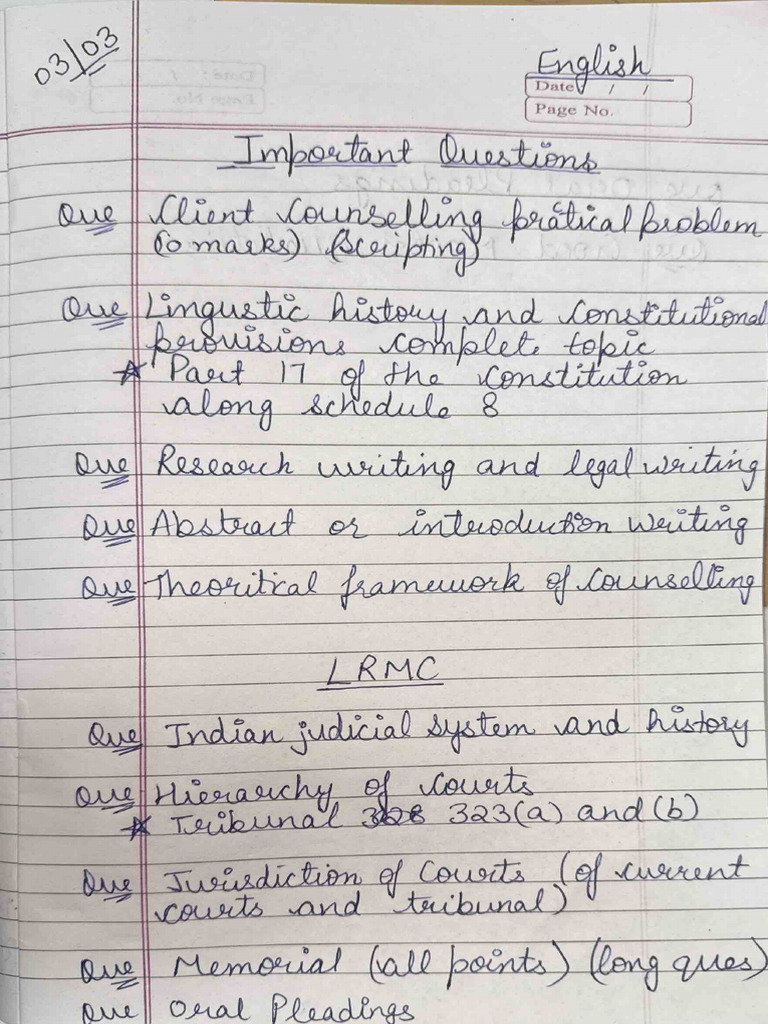 03/03
English
Date / /
Page No.
Important Questions
Que Client Counselling prátical problem
(o marks) (scripting)
Que Lingustic history and constitutional
provisions complete topic
☆ Part 17 of the constitution
along schedule 8
Que Research writing and legal writing
Que Abstract or introduction writing
Que Theoritical framework of Counselling
LRMC
Que Indian judicial system and history
Que Hierarchy of courts
☆ Tribunal 323(a) and (b)
Que Jurisdiction of Courts (of current
courts and tribunal)
Que Memorial (all points) (long ques)
Que Oral Pleadings